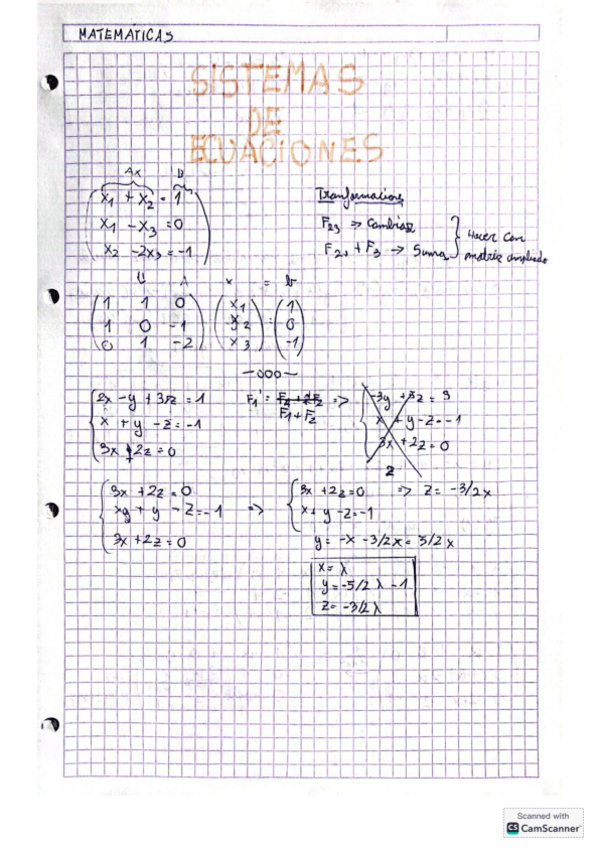 MATEMATICAS
SISTEMAS
DE
ECUACIONES
Ax B
x₁ + x₂ = 1
x₁ - x₃ = 0
x₂ - 2x₃ = -1
Tranformacions
F₂₃ => Cambiar
F₂, + F₃ → Suma
Hacer con
matriz ampliada
A x = b
1 1 0 x₁ 1
1 0 -1 x₂ = 0
0 1 -2 x₃ -1
-ooo-
2x - y + 3z = 1
x + y - z = -1
3x + 2z = 0
F₁' = F₁ + F₂ =>
-3y + 5z = 3
x + y - z = -1
3x + 2z = 0
2
3x + 2z = 0
xy + y - z = -1 =>
3x + 2z = 0
3x + 2z = 0 => z = -3/2x
x + y - z = -1
y = -x - 3/2x = 5/2x
x = λ
y = -5/2 λ - 1
z = -3/2 λ
Scanned with
CS CamScanner